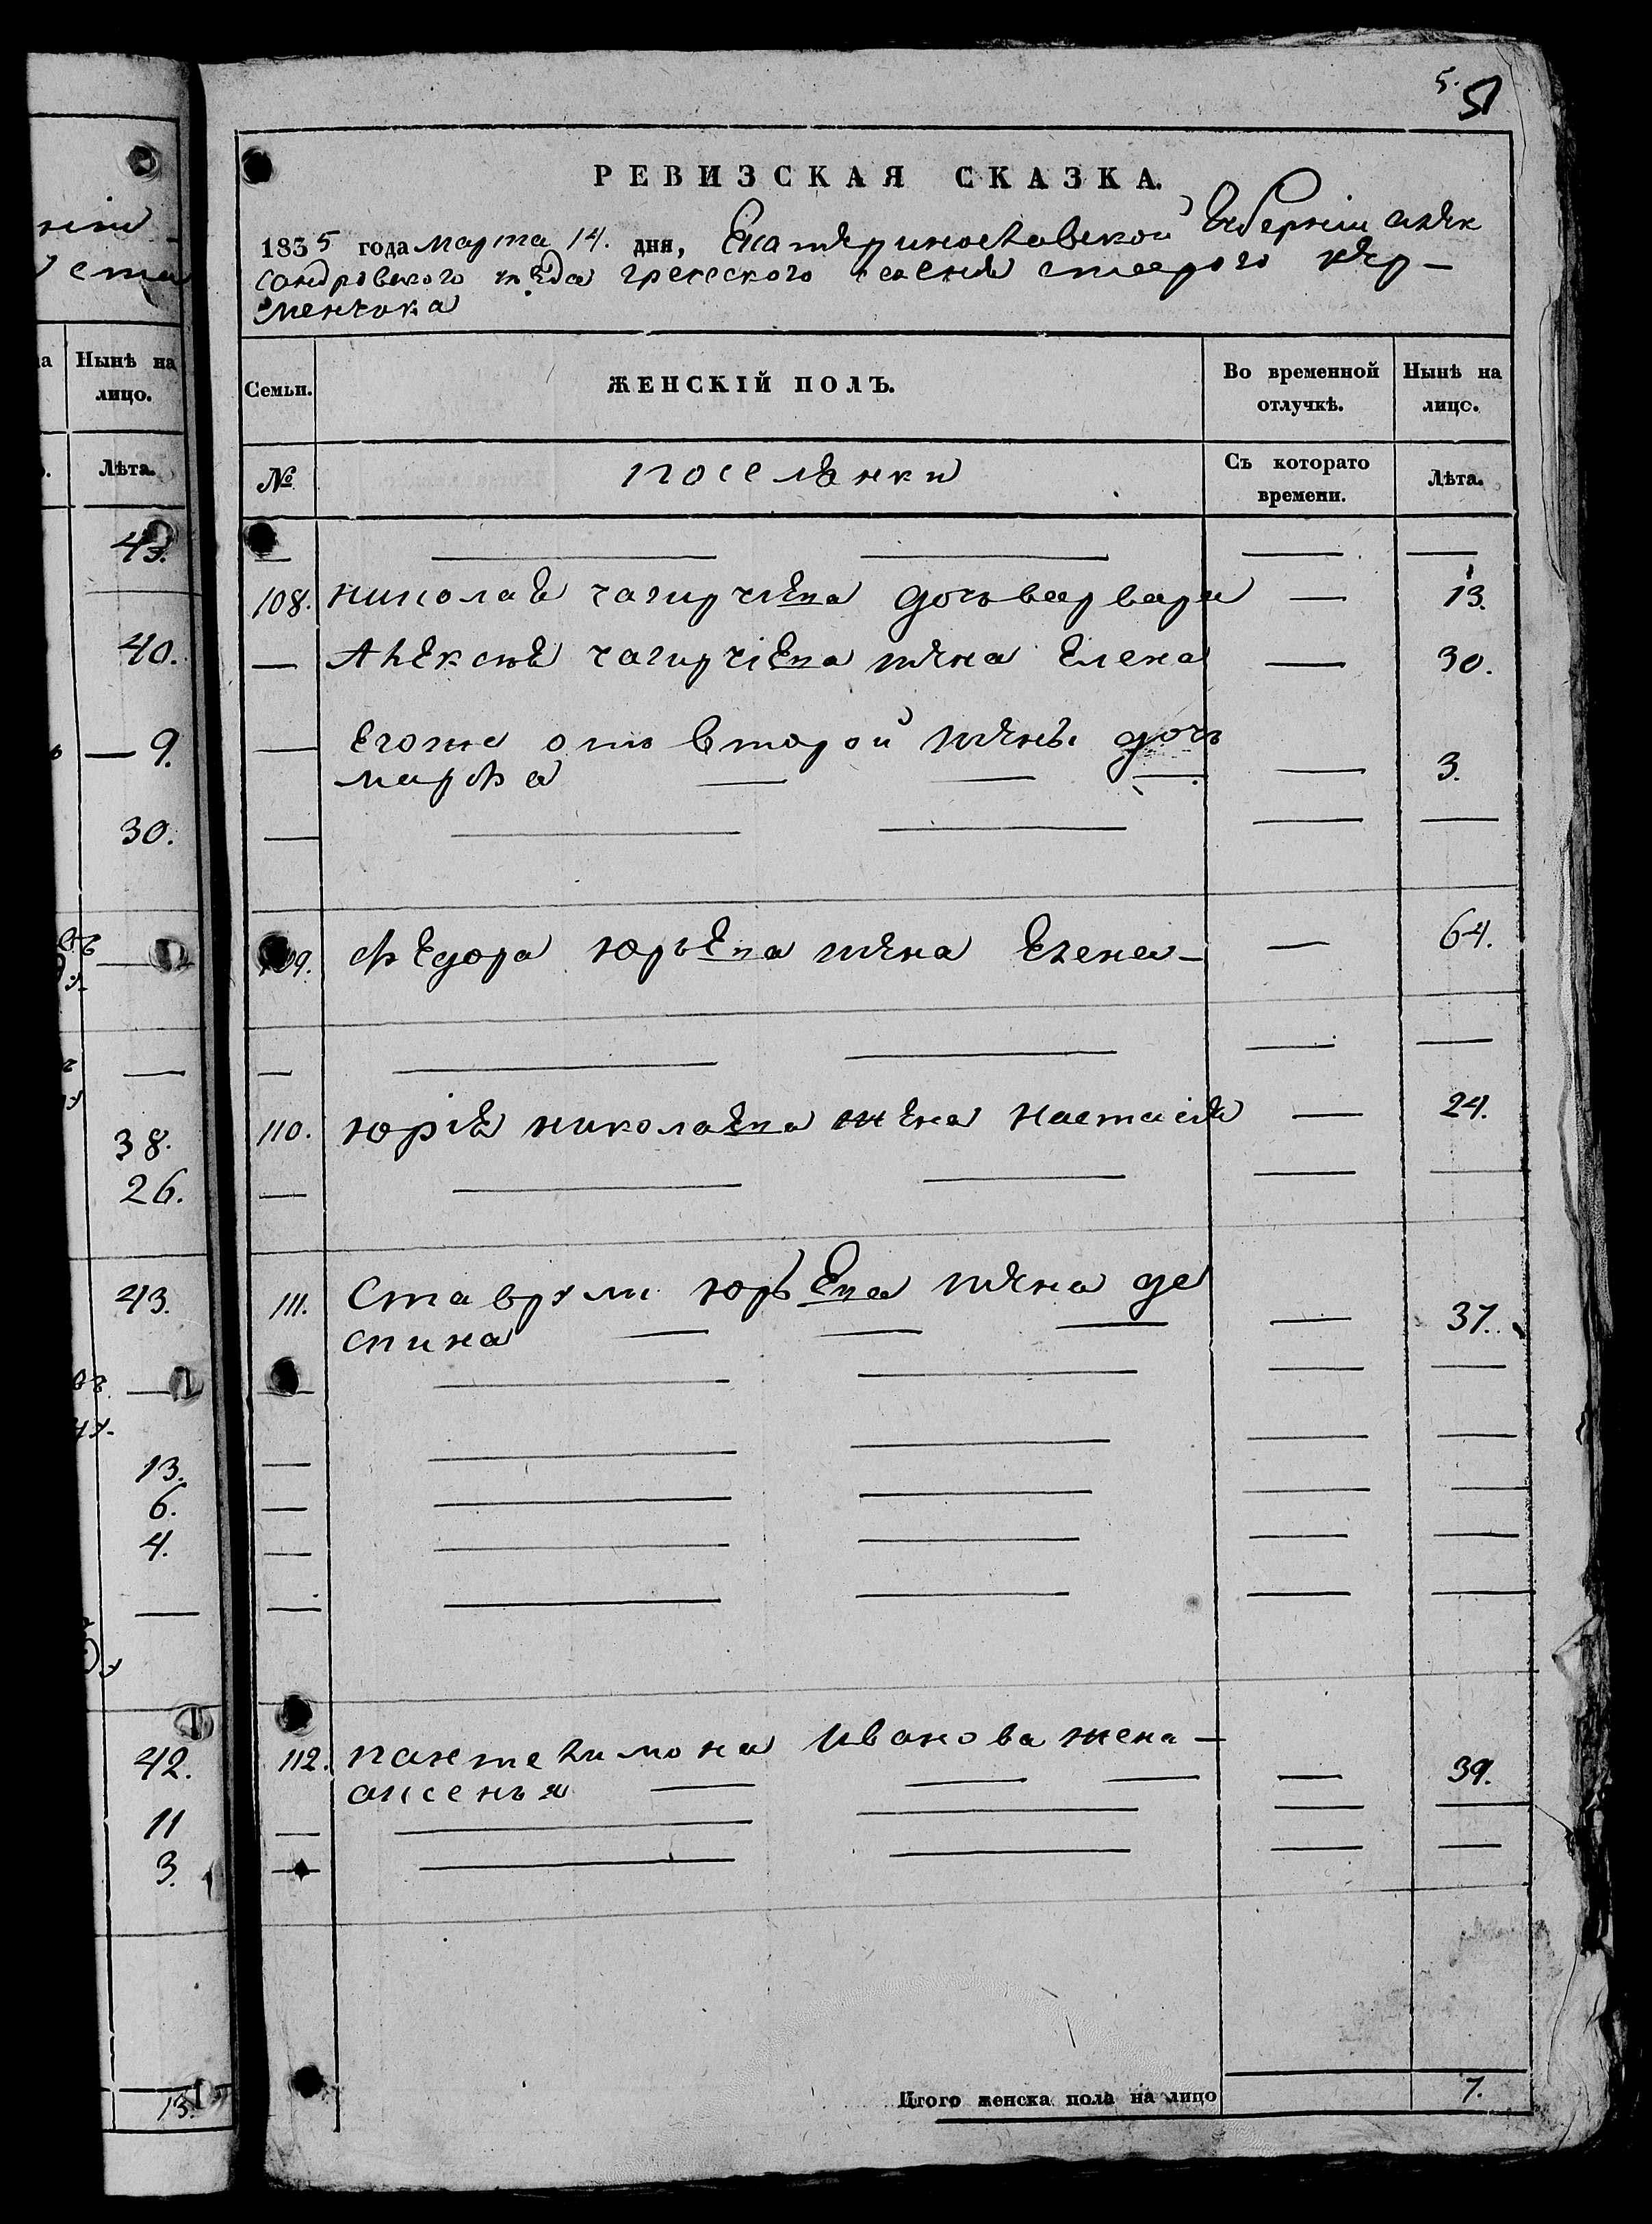 5.
51
РЕВИЗСКАЯ СКАЗКА.
1835 года марта 14. дня, Екатеринославской Губерніи алек
сандровского уезда греческого селения старого кер-
менчика
Семьи.
ЖЕНСКІЙ ПОЛЪ.
Во временной отлучкѣ.
Нынѣ на лицо.
№
поселянки
Съ котораго времени.
Лѣта.
108. николая чагирчиева дочь варвара — 13.
— Алексея чагирчіева жена Елена — 30.
— Егоже от второй жены дочь
марфа — — — — 3.
109. федора юрьева жена Елена — — 64.
110. юрія николаева жена настасія — 24.
111. Ставрули юрьева жена де
спина — — — — 37.
112. пантелимона иванова жена —
аксенья — — — — 39.
Итого женска пола на лицо 7.
Нынѣ на
лицо.
Лѣта.
43.
40.
— 9.
30.
38.
26.
43.
13.
6.
4.
42.
11
3.
13.